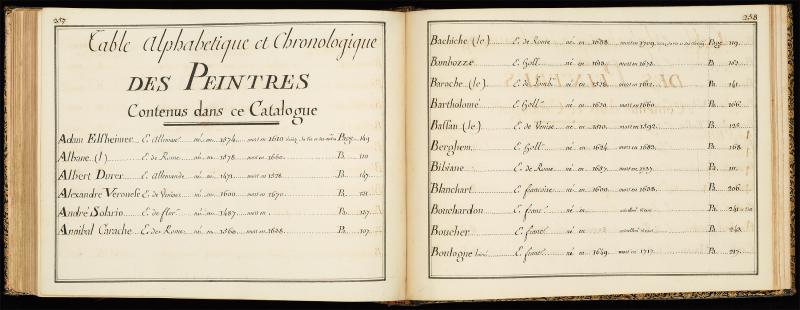 257
Table Alphabetique et Chronologique
DES PEINTRES
Contenus dans ce Catalogue
Adam Elsheimer E. Allemane né en 1574 mort en 1610 Page 149
Albane (l') E. de Rome né en 1578 mort en 1660 P. 110
Albert Durer E. Allemande né en 1471 mort en 1528 P. 147
Alexandre Veronese E. de Venise né en 1600 mort en 1670 P. 131
André Solario E. de flor. né en 1487 mort en P. 127
Annibal Carache E. de Rome né en 1560 mort en P. 107
258
Bachiche (le) E. de Rome né en mort en 1709 Page 119
Bambozze E. Holl. né en 1613 mort en 1673 P. 163
Baroche (le) E. de né en 1528 mort en 1612 P. 141
Bartholomé E. Holl. né en 1620 mort en 1660 P. 166
Bassan (le) E. de Venise né en 1510 mort en 1592 P. 125
Berghem E. Holl. né en 1624 mort en 1683 P. 168
Bibiane E. de Rome né en 1657 mort en P. 111
Blanchart E. francoise né en 1600 mort en 1638 P. 206
Bouchardon E. franc. né en P. 241
Boucher E. franc. né en P. 243
Boulogne E. franc. né en 1649 mort en 1717 P. 217